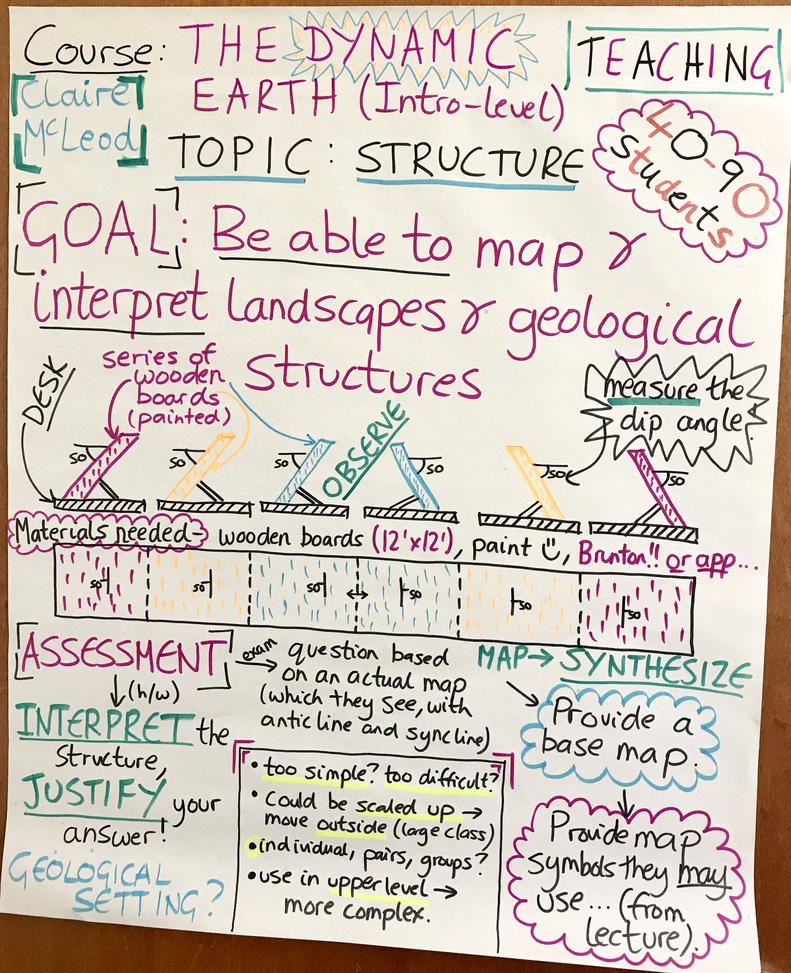 Course: THE DYNAMIC
EARTH (Intro-level)
TEACHING
Claire
McLeod
TOPIC: STRUCTURE
40-90
students
GOAL: Be able to map &
interpret landscapes & geological
structures
DESK
series of
wooden
boards
(painted)
OBSERVE
measure the
dip angle
50 50 50 50 50 50
Materials needed → wooden boards (12'x12'), paint ☺, Brunton!! or app...
50 50 50 ↔ 50 50 50
ASSESSMENT
exam →
question based
on an actual map
(which they see, with
anticline and syncline)
↓ (h/w)
INTERPRET the
structure,
JUSTIFY your
answer!
GEOLOGICAL
SETTING?
• too simple? too difficult?
• Could be scaled up →
move outside (large class)
• individual, pairs, groups?
• use in upper level →
more complex.
MAP → SYNTHESIZE
Provide a
base map.
Provide map
symbols they may
use... (from
lecture).